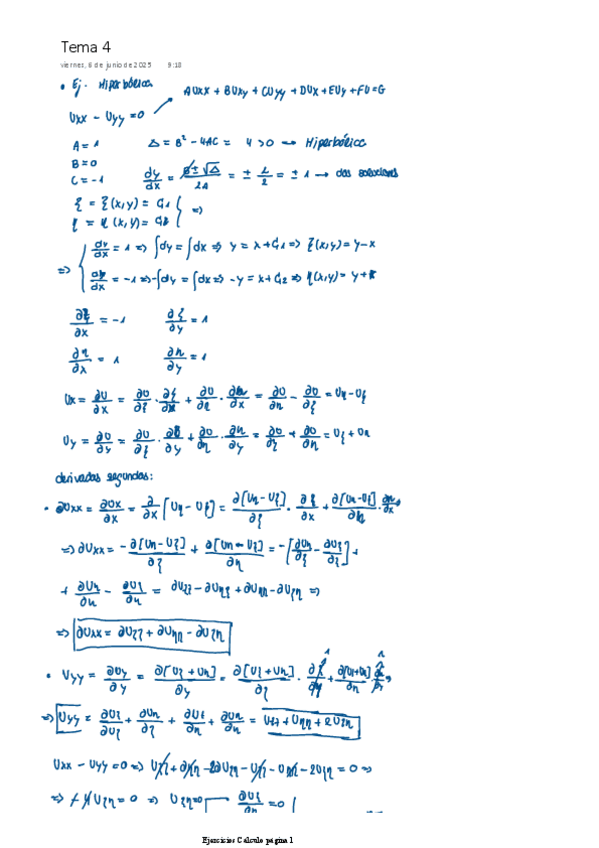 Tema 4
viernes, 6 de junio de 2025 9:18
• Ej. Hiperbólica
AUxx + BUxy + CUyy + DUx + EUy + FU = G
Uxx − Uyy = 0
A = 1 Δ = B² − 4AC = 4 > 0 → Hiperbólica
B = 0
C = −1 dy/dx = (B ± √Δ)/2A = ± 2/2 = ± 1 → dos soluciones
ξ = ξ(x,y) = C1
η = η(x,y) = C2 } ⇒
dy/dx = 1 ⇒ ∫dy = ∫dx ⇒ y = x + C1 ⇒ ξ(x,y) = y − x
⇒ { dy/dx = −1 ⇒ −∫dy = ∫dx ⇒ −y = x + C2 ⇒ η(x,y) = y + x
∂ξ/∂x = −1 ∂ξ/∂y = 1
∂η/∂x = 1 ∂η/∂y = 1
Ux = ∂U/∂x = ∂U/∂ξ · ∂ξ/∂x + ∂U/∂η · ∂η/∂x = ∂U/∂η − ∂U/∂ξ = Uη − Uξ
Uy = ∂U/∂y = ∂U/∂ξ · ∂ξ/∂y + ∂U/∂η · ∂η/∂y = ∂U/∂ξ + ∂U/∂η = Uξ + Uη
derivadas segundas:
• ∂Uxx = ∂Ux/∂x = ∂/∂x [Uη − Uξ] = ∂[Uη − Uξ]/∂ξ · ∂ξ/∂x + ∂[Uη − Uξ]/∂η · ∂η/∂x
⇒ ∂Uxx = −∂[Uη − Uξ]/∂ξ + ∂[Uη − Uξ]/∂η = −[∂Uη/∂ξ − ∂Uξ/∂ξ] +
+ ∂Uη/∂η − ∂Uξ/∂η = ∂Uξξ − ∂Uηξ + ∂Uηη − ∂Uξη ⇒
⇒ ∂Uxx = ∂Uξξ + ∂Uηη − ∂Uξη
• Uyy = ∂Uy/∂y = ∂[Uξ + Uη]/∂y = ∂[Uξ + Uη]/∂ξ · ∂ξ/∂y + ∂[Uξ + Uη]/∂η
⇒ Uyy = ∂Uξ/∂Uξ + ∂Uη/∂ξ + ∂Uξ/∂η + ∂Uη/∂η = Uξξ + Uηη + 2Uξη
Uxx − Uyy = 0 ⇒ Uξξ + ∂ηη − 2∂Uξη − Uξξ − Uηη − 2Uξη = 0 ⇒
⇒ −4Uξη = 0 ⇒ Uξη = 0 ∂Uξ/∂η = 0
Ejercicios Calculo página 1